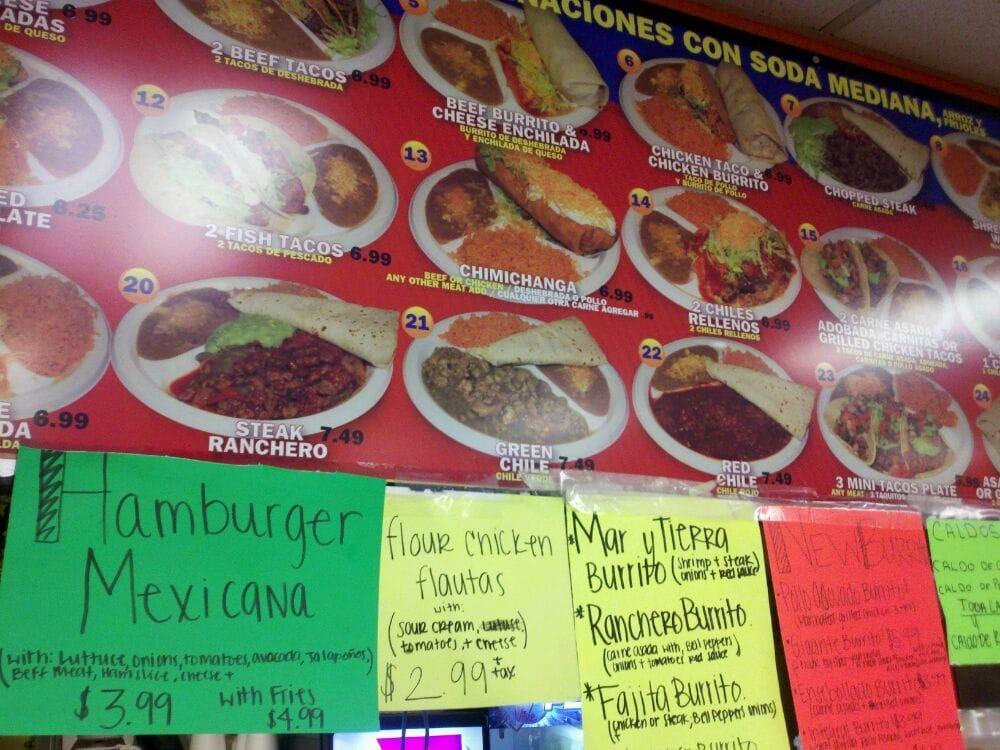 NACIONES CON SODA MEDIANA, ARROZ Y
FRIJOLES
6.99
DE QUESO
2 BEEF TACOS 6.99
2 TACOS DE DESHEBRADA
5
BEEF BURRITO &
CHEESE ENCHILADA 6.99
BURRITO DE DESHEBRADA
Y ENCHILADA DE QUESO
6
CHICKEN TACO &
CHICKEN BURRITO 6.99
TACO DE POLLO
Y BURRITO DE POLLO
7
CHOPPED STEAK
CARNE ASADA
8
LATE 6.25
12
2 FISH TACOS 6.99
2 TACOS DE PESCADO
13
CHIMICHANGA 6.99
BEEF OR CHICKEN / DESHEBRADA O POLLO
ANY OTHER MEAT ADD / CUALQUIER OTRA CARNE AGREGAR
14
2 CHILES
RELLENOS 6.99
2 CHILES RELLENOS
15
2 CARNE ASADA
ADOBADA, CARNITAS OR
GRILLED CHICKEN TACOS
2 TACOS DE CARNE ASADA, ADOBADA,
CARNITAS O POLLO ASADO
16
6.99
20
STEAK
RANCHERO 7.49
21
GREEN
CHILE 7.49
CHILE VERDE
22
RED
CHILE 7.49
CHILE ROJO
23
3 MINI TACOS PLATE
ANY MEAT / 3 TAQUITOS
24
Hamburger
Mexicana
(with: Luttuce, onions, tomatoes, avocado, Jalapeños,)
Beff meat, Ham slice, cheese +
$3.99 with Fries
$4.99
flour chicken
flautas
with:
(sour cream,
tomatoes + cheese)
$2.99 + tax
*Mar y Tierra
Burrito (shrimp + steak
onions + red sauce)
*Ranchero Burrito.
(carne asada with, Bell Peppers
onions + tomatoes red sauce)
*Fajita Burrito.
(chicken or steak, Bell Peppers onions)
Burrito
New Burr
Burrito
Burrito
CALDOS
CALDO DE
CALDO DE
TODA LA
CALDO DE